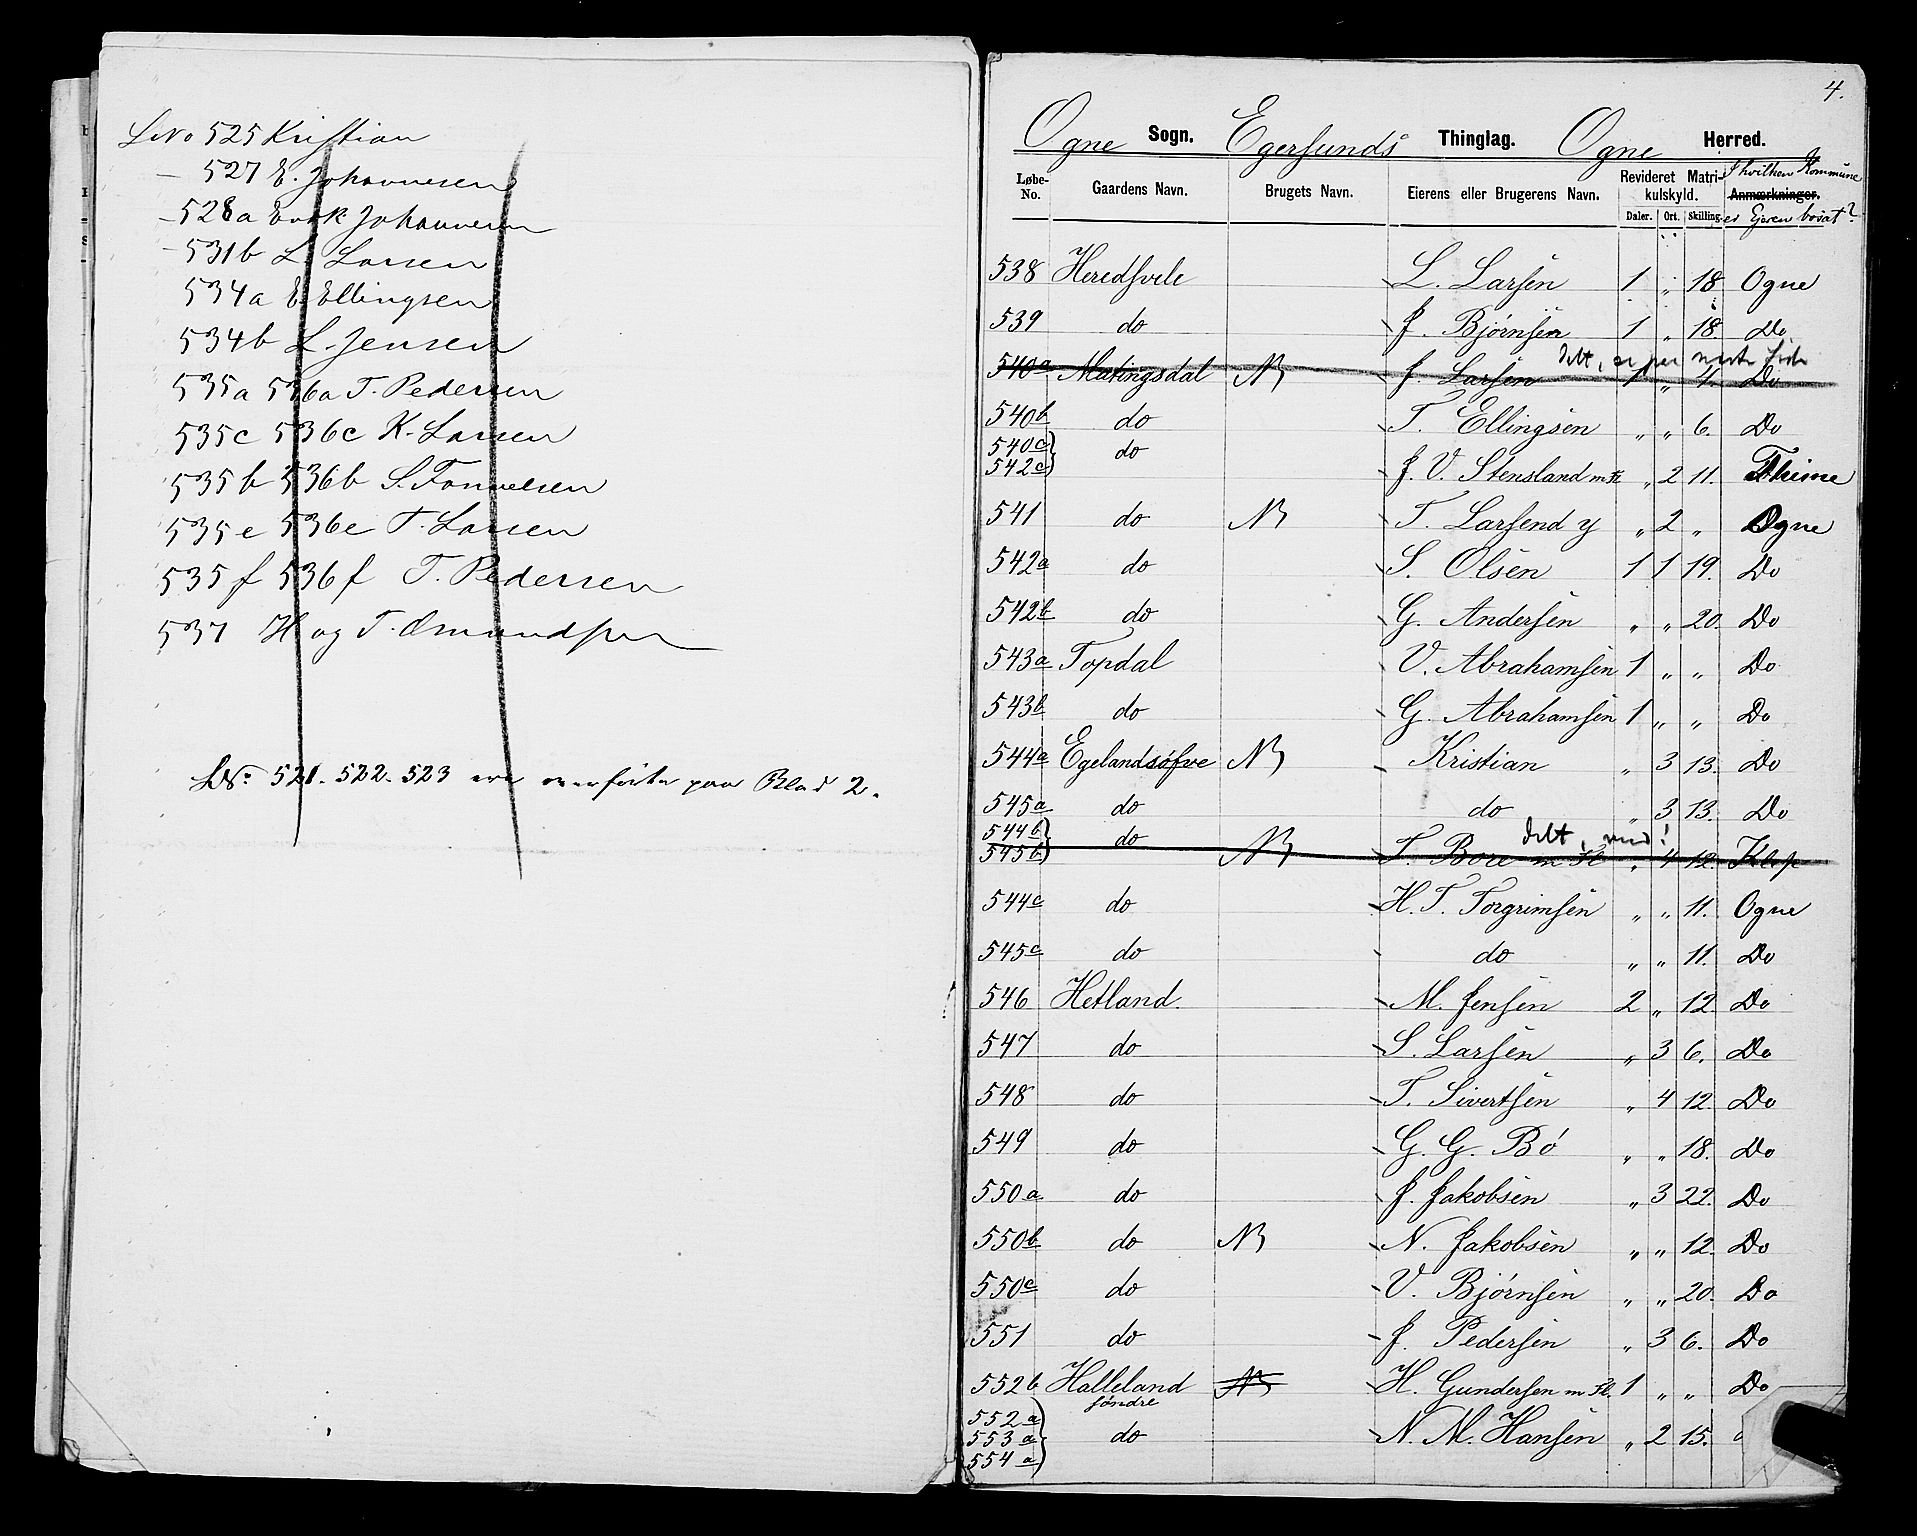 LNo 525 Kristian
— 527 E. Johannesen
— 528a Enok Johannesen
— 531b L. Larsen
534a E. Ellingsen
534b L. Jensen
535a 536a T. Pedersen
535c 536c K. Larsen
535b 536b S.
535e 536e T. Larsen
535f 536f T. Pedersen
537 H og T. Omundsen
LNr. 521. 522. 523 ere overførte paa Blad 2.
4.
Ogne Sogn. Egersunds Thinglag. Ogne Herred.
Løbe-No. Gaardens Navn. Brugets Navn. Eierens eller Brugerens Navn. Revideret Matrikulskyld. Daler. Ort. Skilling. Anmærkninger. I hvilken Kommune er Ejeren bosat?
538 Heredsvele L. Larsen 1 „ 18. Ogne
539 do J. Bjørnsen 1 „ 18. Do
delt, se næste Side
540a Matingsdal NB J. Larsen 1 „ Do
540b do T. Ellingsen „ „ 6. Do
540c 542c } do J. V. Stensland m Fl „ 2 11. Thime
541 do NB T. Larsen d y „ 2 „ Ogne
542a do S. Olsen 1 1 19. Do
542b do G. Andersen „ „ 20. Do
543a Topdal V. Abrahamsen 1 „ „ Do
543b do G. Abrahamsen 1 „ „ Do
544a Egelandsøfve NB Kristian „ 3 13. Do
545a do do „ 3 13. Do
delt,
544b 545b } do NB T. Bore m Fl „ 4 12. Klep
544c do H. T. Torgrimsen „ „ 11. Ogne
545c do do „ „ 11. Do
546 Hetland. M. Jensen 2 „ 12. Do
547 do S. Larsen „ 3 6. Do
548 do T. Sivertsen „ 4 12. Do
549 do G. G. Bø „ „ 18. Do
550a do J. Jakobsen „ 3 22. Do
550b do NB N. Jakobsen „ „ 12. Do
550c do V. Bjørnsen „ „ 20. Do
551 do J. Pedersen „ 3 6. Do
552b Halleland søndre NB H. Gundersen m Fl. 1 „ „ Do
552a 553a 554a } do N. M. Hansen „ 2 15.